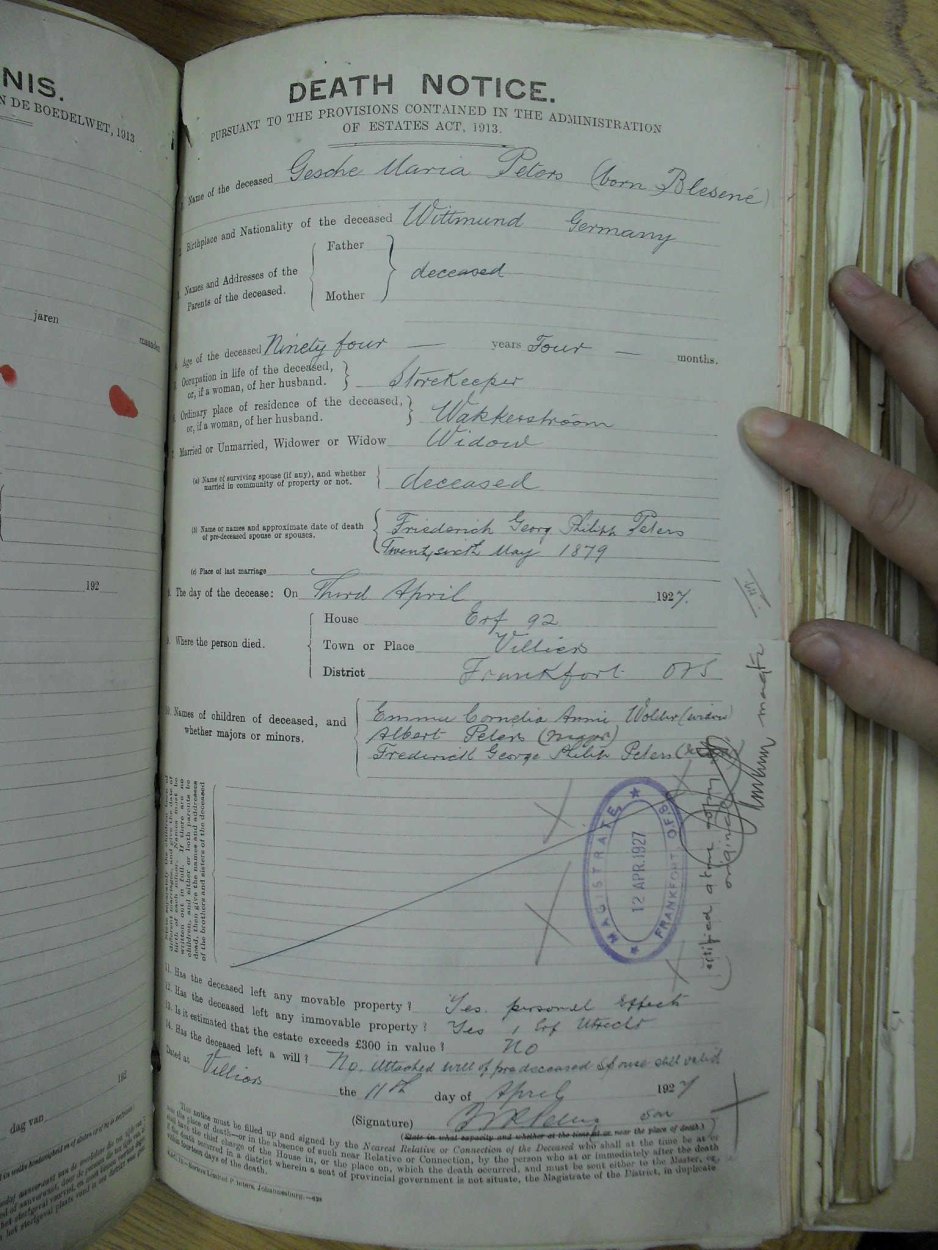 NIS.
N DE BOEDELWET, 1913
jaren
maanden
192
192
dag van
DEATH NOTICE.
PURSUANT TO THE PROVISIONS CONTAINED IN THE ADMINISTRATION
OF ESTATES ACT, 1913.
Name of the deceased Gesche Maria Peters (born Blesené)
Birthplace and Nationality of the deceased Wittmund Germany
Names and Addresses of the Parents of the deceased. Father Mother deceased
Age of the deceased Ninety four — years Four — months.
Occupation in life of the deceased, or, if a woman, of her husband. Storekeeper
Ordinary place of residence of the deceased, or, if a woman, of her husband. Wakkerstroom
Married or Unmarried, Widower or Widow Widow
(a) Name of surviving spouse (if any), and whether married in community of property or not. deceased
(b) Name or names and approximate date of death of pre-deceased spouse or spouses. Friederich Georg Philipp Peters
Twenty sixth May 1879
(c) Place of last marriage
8. The day of the decease: On Third April 1927.
9. Where the person died. House Erf 92
Town or Place Villiers
District Frankfort OFS
10. Names of children of deceased, and whether majors or minors. Emma Cornelia Annie Wolter (widow)
Albert Peters (major)
Frederick George Philip Peters
written out in full. If there are no
children, and either or both parents be
dead, then give the names and addresses
of the brothers and sisters of the deceased
MAGISTRATE
12 APR. 1927
FRANKFORT OFS
Certified a true copy of original
11. Has the deceased left any movable property? Yes. personal Effects
12. Has the deceased left any immovable property? Yes 1 Erf Utrecht
13. Is it estimated that the estate exceeds £300 in value? No
14. Has the deceased left a will? No. Attached will of predeceased Spouse still valid
Dated at Villiers the 11th day of April 1927
(Signature) son
(State in what capacity and whether at the time at or near the place of death)
This notice must be filled up and signed by the Nearest Relative or Connection of the Deceased who shall at the time be at or
near the place of death—or in the absence of such near Relative or Connection, by the person who at or immediately after the death
shall have the chief charge of the House in, or the place on, which the death occurred, and must be sent either to the Master, or,
if the death occurred in a district wherein a seat of provincial government is not situate, the Magistrate of the District, in duplicate
within fourteen days of the death.